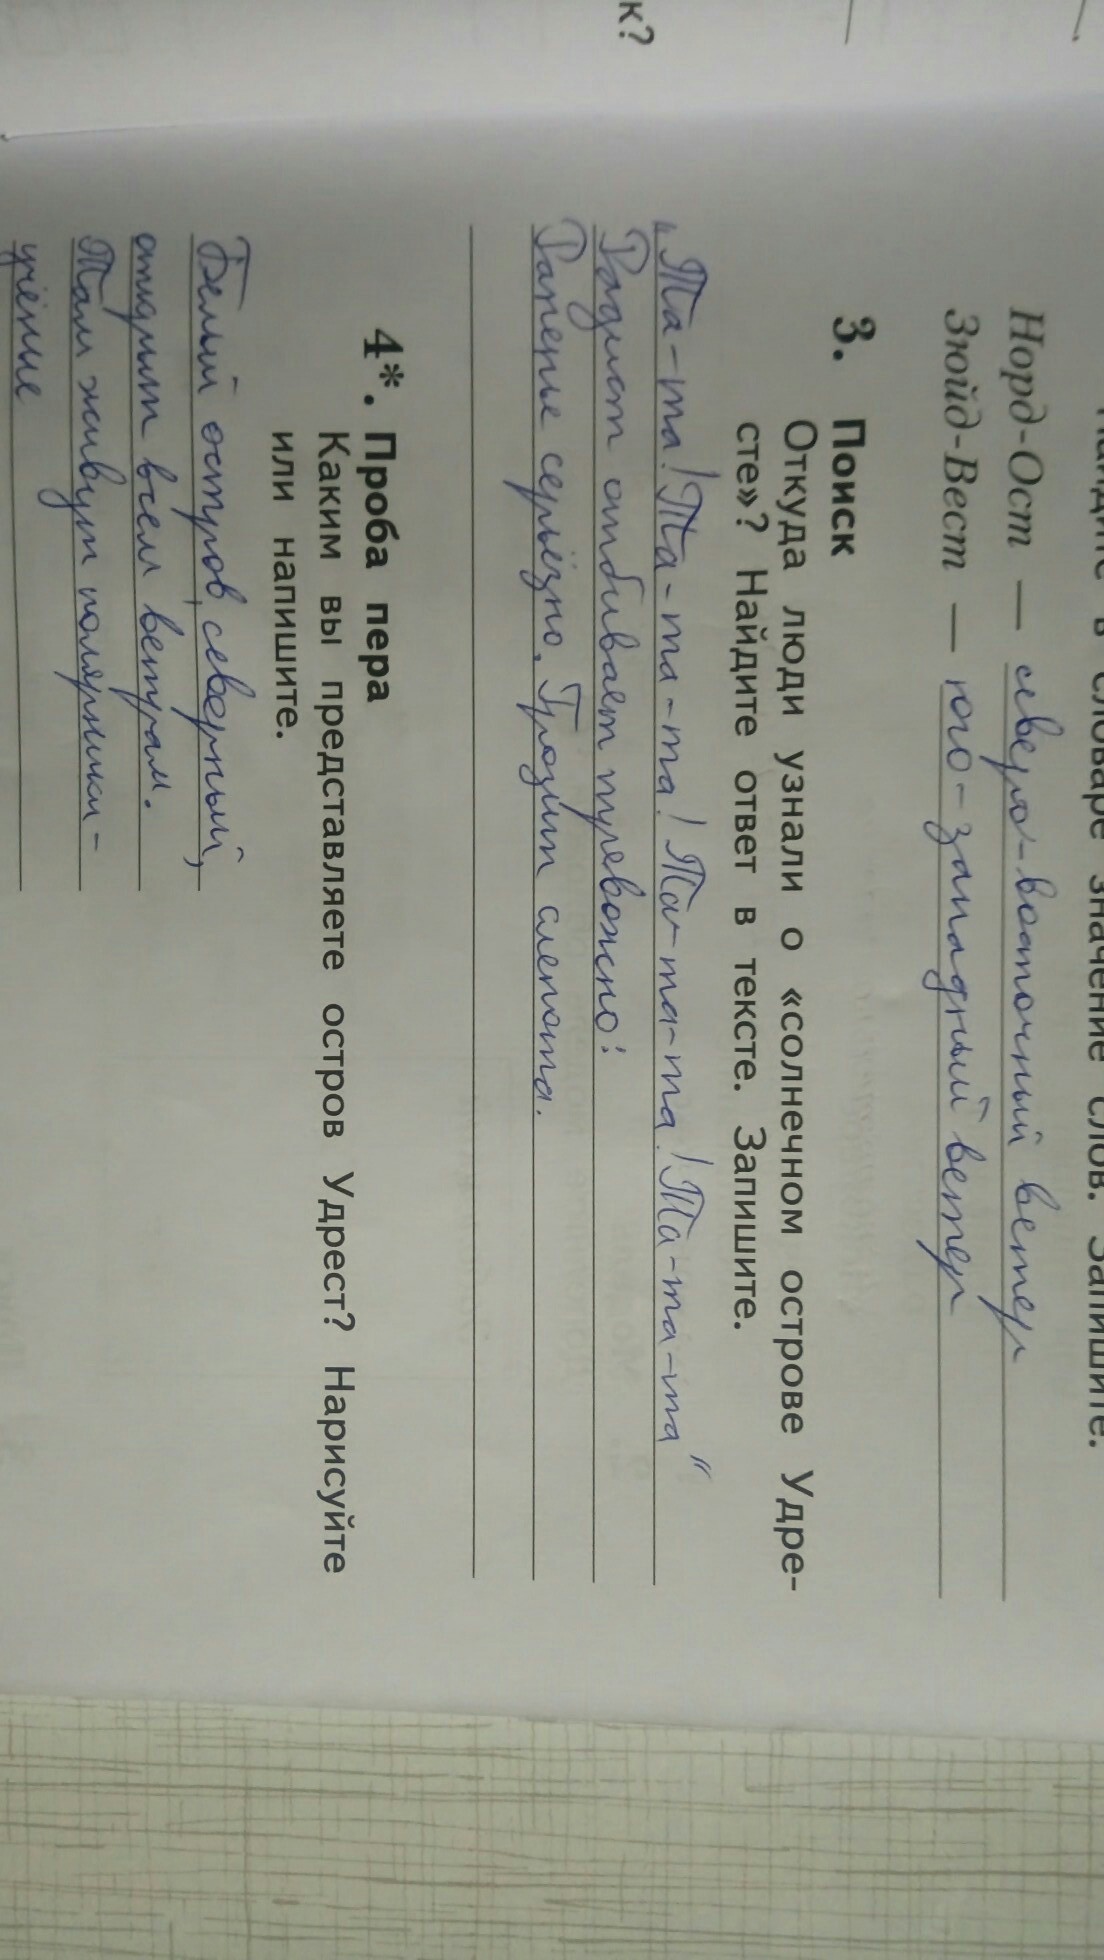 к?
Найдите в словаре значение слов. Запишите.
Норд-Ост — северо-восточный ветер
Зюйд-Вест — юго-западный ветер
3. Поиск
Откуда люди узнали о «солнечном острове Удре-
сте»? Найдите ответ в тексте. Запишите.
„Та-та! Та-та-та! Та-та-та! Та-та-та“
Радист отбивает тревожно:
Раненье серьёзно. Грозит слепота.
4*. Проба пера
Каким вы представляете остров Удрест? Нарисуйте
или напишите.
Белый остров, северный,
открыт всем ветрам.
Там живут полярники-
учёные